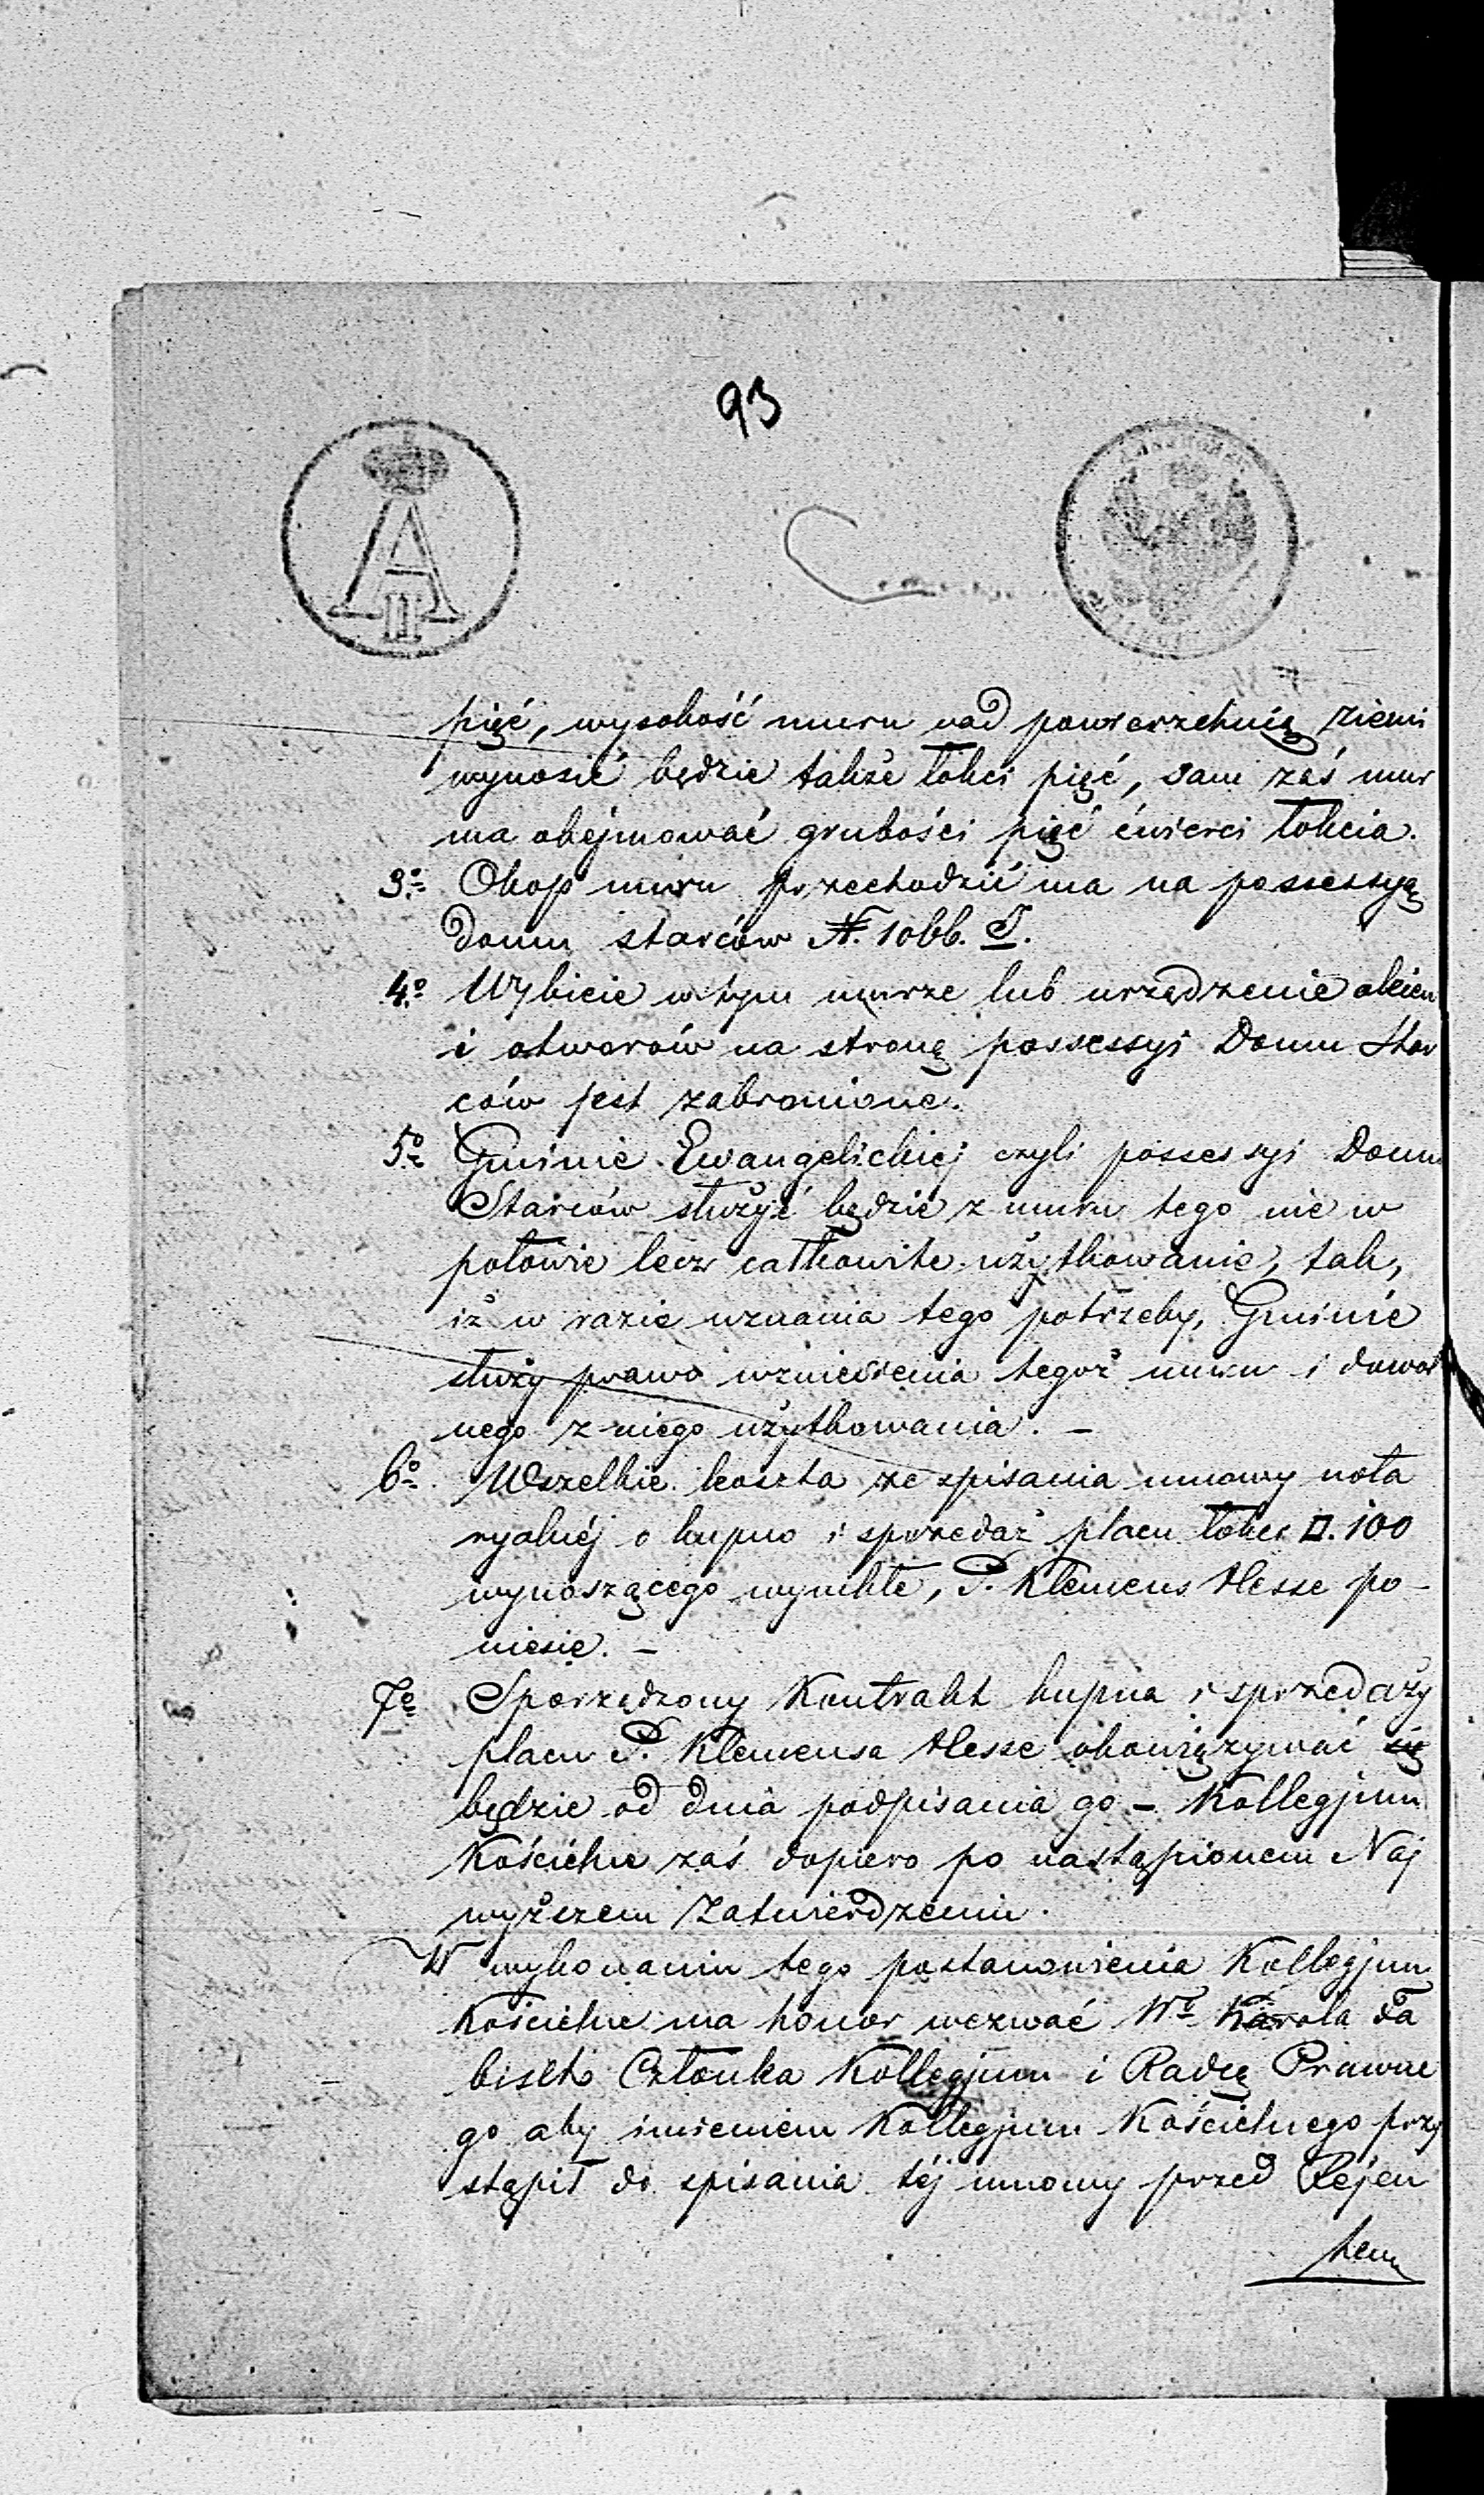 93
A
II
pięć, wysokość muru nad powierzchnią ziemi
wynosić będzie także łokci pięć, sam zaś mur
ma obejmować grubości pięć ćwierci łokcia.
3o Okop muru przechodzić ma na possessyą
domu starców N. 1066. I.
4o Wybicie w tym murze lub urządzenie okien
i otworów na stronę possessyi Domu Star
ców jest zabronione.
5o Gminie Ewangelickiej czyli possessyi Domu
Starców służyć będzie z muru tego nie w
połowie lecz całkowite użytkowanie, tak,
iż w razie uznania tego potrzeby, Gminie
służy prawo wzniesienia tegoż muru i dowol
nego z niego użytkowania. –
6o Wszelkie koszta ze spisania umowy nota
ryalnéj o kupno i sprzedaż placu łokci □. 100
wynoszącego wynikłe, P. Klemens Hesse po-
niesie. –
7o Sporządzony Kontrakt kupna i sprzedaży
placu P. Klemensa Hesse obowiązywać się
będzie od dnia podpisania go – Kollegjum
Kościelne zaś dopiero po nastąpionem Naj
wyższem Zatwierdzeniu.
W wykonaniu tego postanowienia Kollegjum
Kościelne ma honor wezwać Wo Karola
Członka Kollegjum i Radcę Prawne
go aby imieniem Kollegjum Kościelnego przy
stąpił do spisania téj umowy przed Rejen
tem